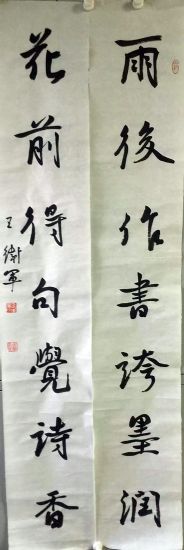 雨後作書誇墨润
花前得句覺詩香
王衛軍